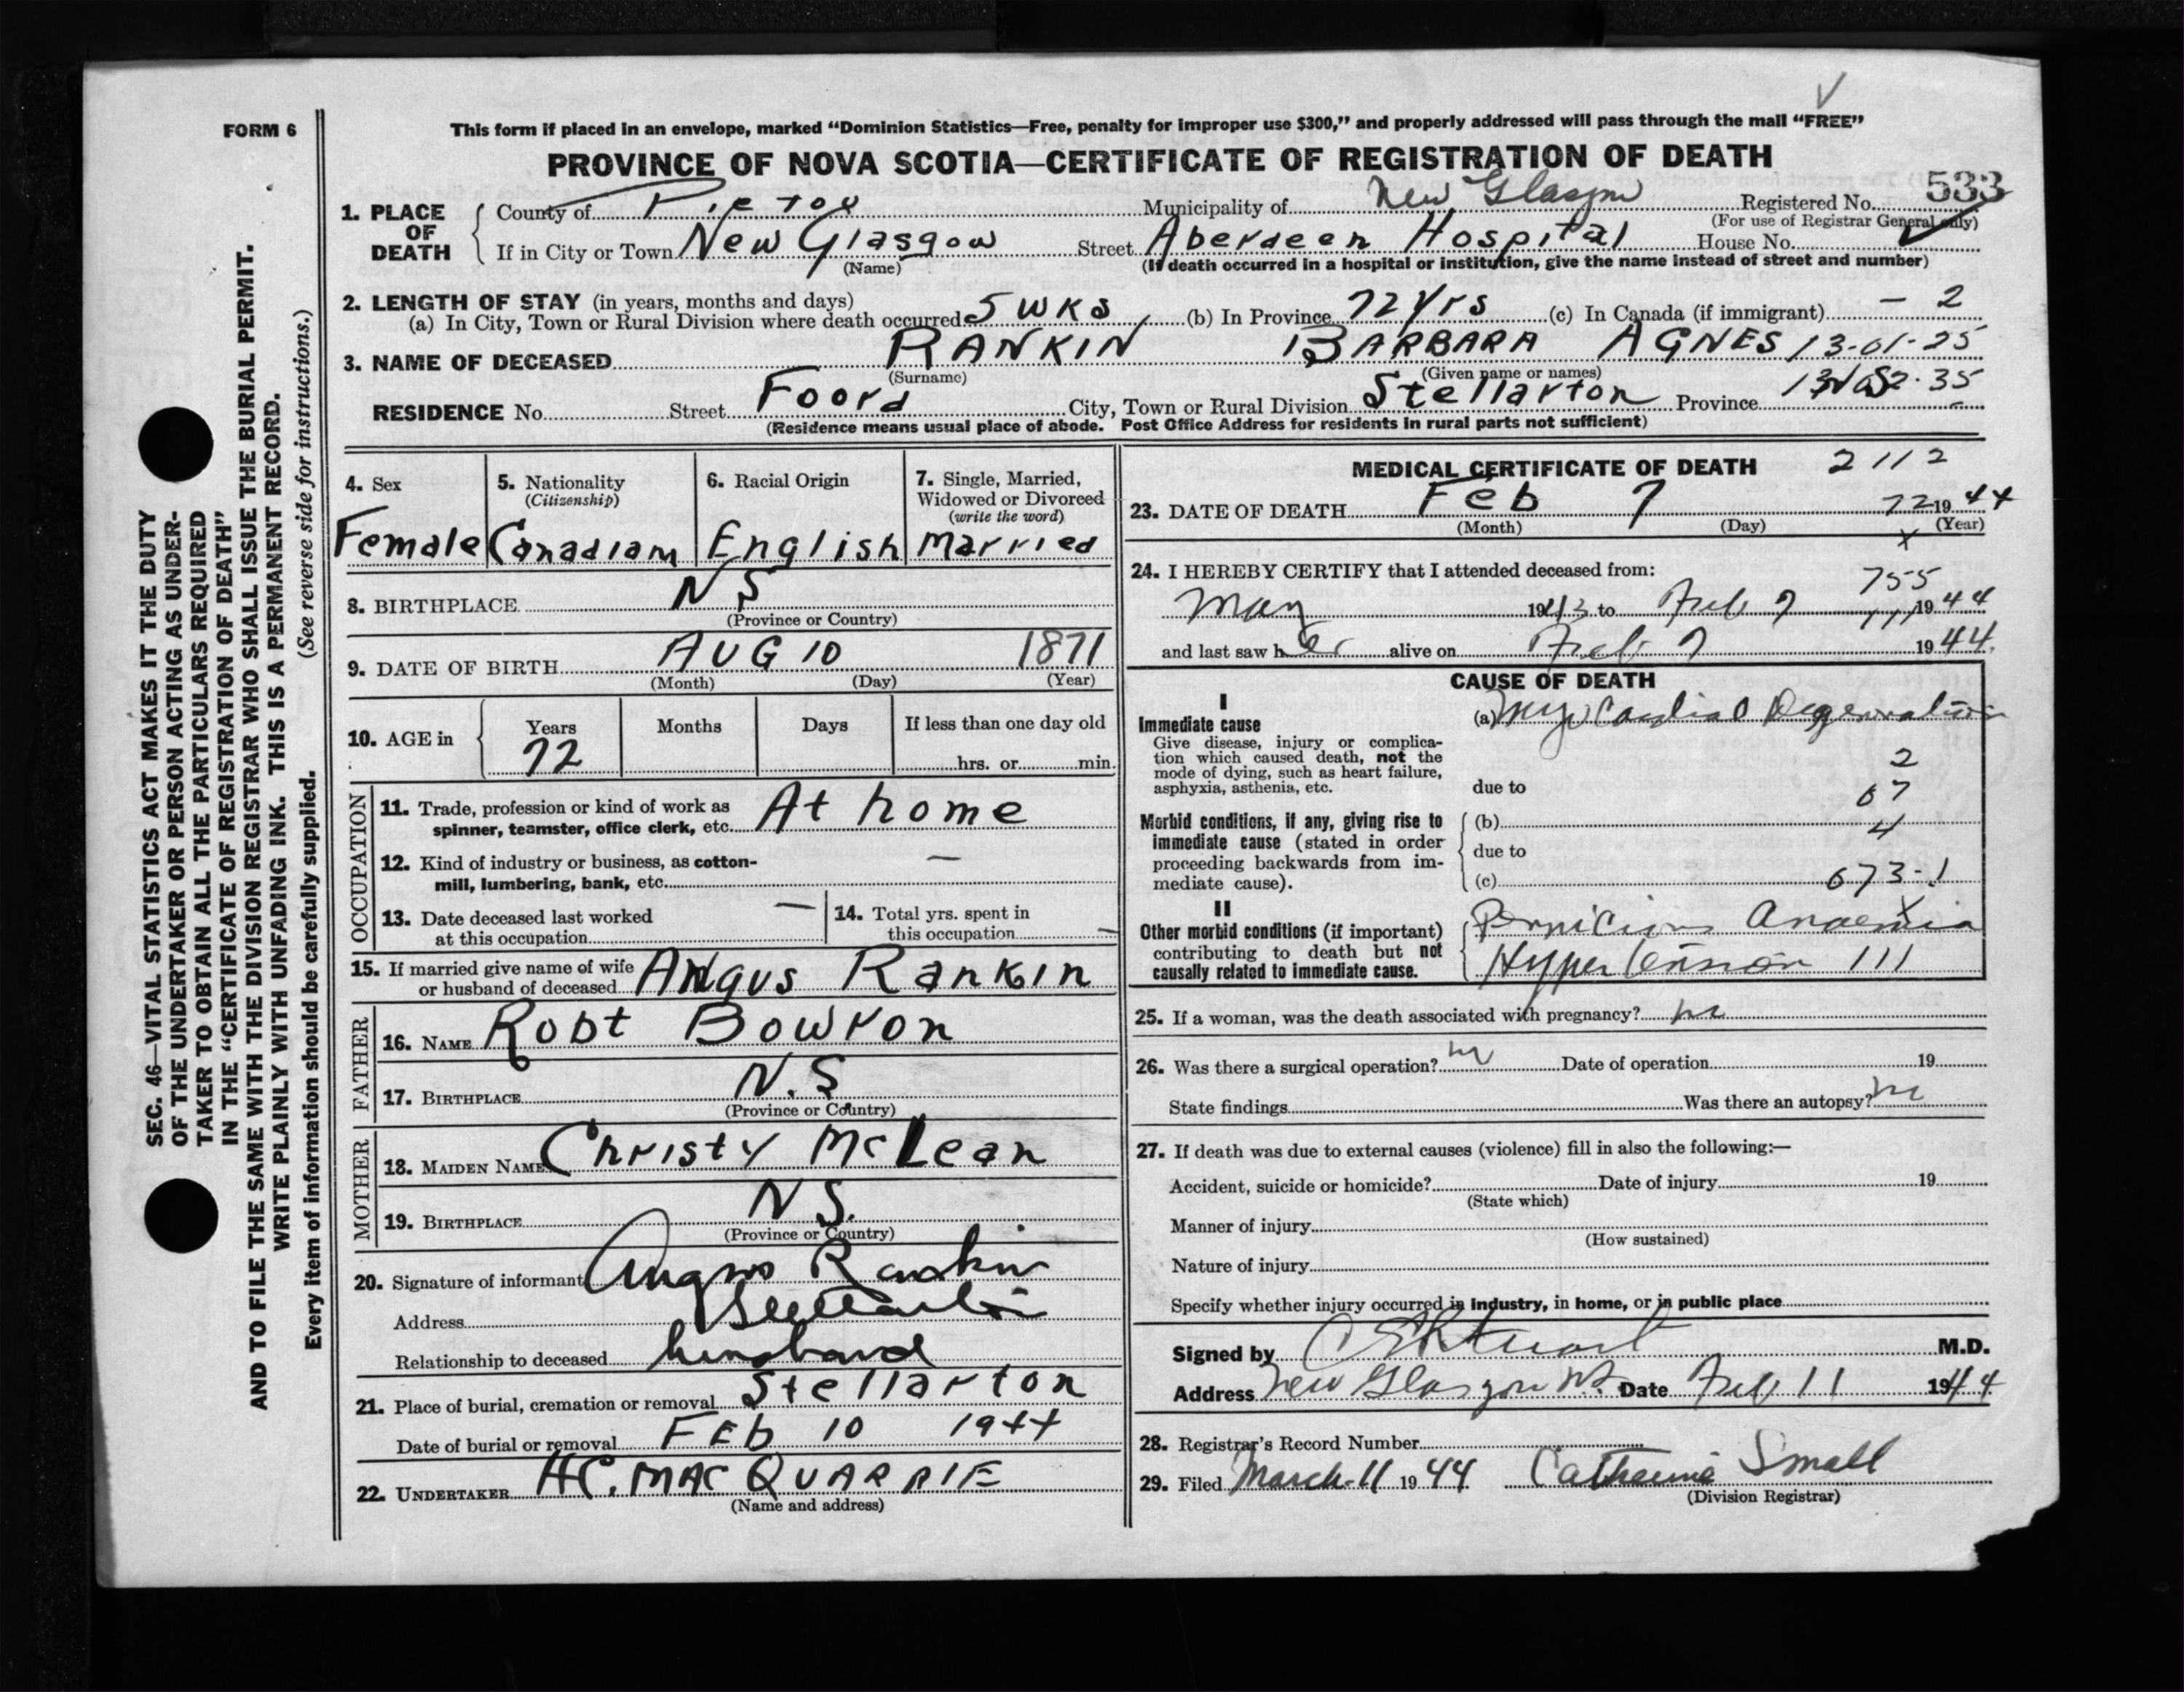 FORM 6
This form if placed in an envelope, marked “Dominion Statistics—Free, penalty for improper use $300,” and properly addressed will pass through the mail “FREE”
PROVINCE OF NOVA SCOTIA—CERTIFICATE OF REGISTRATION OF DEATH
533
1. PLACE OF DEATH County of Pictou Municipality of New Glasgow Registered No.
(For use of Registrar General only)
If in City or Town New Glasgow Street Aberdeen Hospital House No.
(Name) (If death occurred in a hospital or institution, give the name instead of street and number)
2. LENGTH OF STAY (in years, months and days)
(a) In City, Town or Rural Division where death occurred 5 wks (b) In Province 72 Yrs (c) In Canada (if immigrant) – 2
3. NAME OF DECEASED RANKIN BARBARA AGNES 13-01-25
(Surname) (Given name or names)
RESIDENCE No. Street Foord City, Town or Rural Division Stellarton Province
(Residence means usual place of abode. Post Office Address for residents in rural parts not sufficient)
SEC. 46—VITAL STATISTICS ACT MAKES IT THE DUTY
OF THE UNDERTAKER OR PERSON ACTING AS UNDER-
TAKER TO OBTAIN ALL THE PARTICULARS REQUIRED
IN THE “CERTIFICATE OF REGISTRATION OF DEATH”
AND TO FILE THE SAME WITH THE DIVISION REGISTRAR WHO SHALL ISSUE THE BURIAL PERMIT.
WRITE PLAINLY WITH UNFADING INK. THIS IS A PERMANENT RECORD.
Every item of information should be carefully supplied. (See reverse side for instructions.)
4. Sex
Female
5. Nationality
(Citizenship)
Canadian
6. Racial Origin
English
7. Single, Married,
Widowed or Divorced
(write the word)
Married
8. BIRTHPLACE NS
(Province or Country)
9. DATE OF BIRTH AUG 10 1871
(Month) (Day) (Year)
10. AGE in Years Months Days If less than one day old
72 hrs. or min.
OCCUPATION
11. Trade, profession or kind of work as
spinner, teamster, office clerk, etc. At home
12. Kind of industry or business, as cotton-
mill, lumbering, bank, etc. —
13. Date deceased last worked
at this occupation —
14. Total yrs. spent in
this occupation —
15. If married give name of wife
or husband of deceased Angus Rankin
FATHER
16. NAME Robt Bowron
17. BIRTHPLACE N.S
(Province or Country)
MOTHER
18. MAIDEN NAME Christy McLean
19. BIRTHPLACE NS.
(Province or Country)
20. Signature of informant Angus Rankin
Address Stellarton
Relationship to deceased husband
21. Place of burial, cremation or removal Stellarton
Date of burial or removal FEb 10 1944
22. UNDERTAKER HC. MAC QUARRIE
(Name and address)
MEDICAL CERTIFICATE OF DEATH 2112
23. DATE OF DEATH Feb 7 72 1944
(Month) (Day) (Year)
x
24. I HEREBY CERTIFY that I attended deceased from:
755
May 1943 to Feb 7 111 1944
and last saw her alive on Feb 7 1944.
CAUSE OF DEATH
I
Immediate cause
Give disease, injury or complica-
tion which caused death, not the
mode of dying, such as heart failure,
asphyxia, asthenia, etc.
(a) Myocardial Degeneration
2
due to
67
Morbid conditions, if any, giving rise to
immediate cause (stated in order
proceeding backwards from im-
mediate cause).
(b) 4
due to
(c) 673-1
II
Other morbid conditions (if important)
contributing to death but not
causally related to immediate cause.
Pernicious Anaemia
Hypertension 111
25. If a woman, was the death associated with pregnancy? no
26. Was there a surgical operation? no Date of operation 19
State findings Was there an autopsy? no
27. If death was due to external causes (violence) fill in also the following:—
Accident, suicide or homicide? Date of injury 19
(State which)
Manner of injury
(How sustained)
Nature of injury
Specify whether injury occurred in industry, in home, or in public place
Signed by M.D.
Address New Glasgow NS. Date Feb 11 1944
28. Registrar's Record Number
29. Filed March-11 1944 Catherine Small
(Division Registrar)